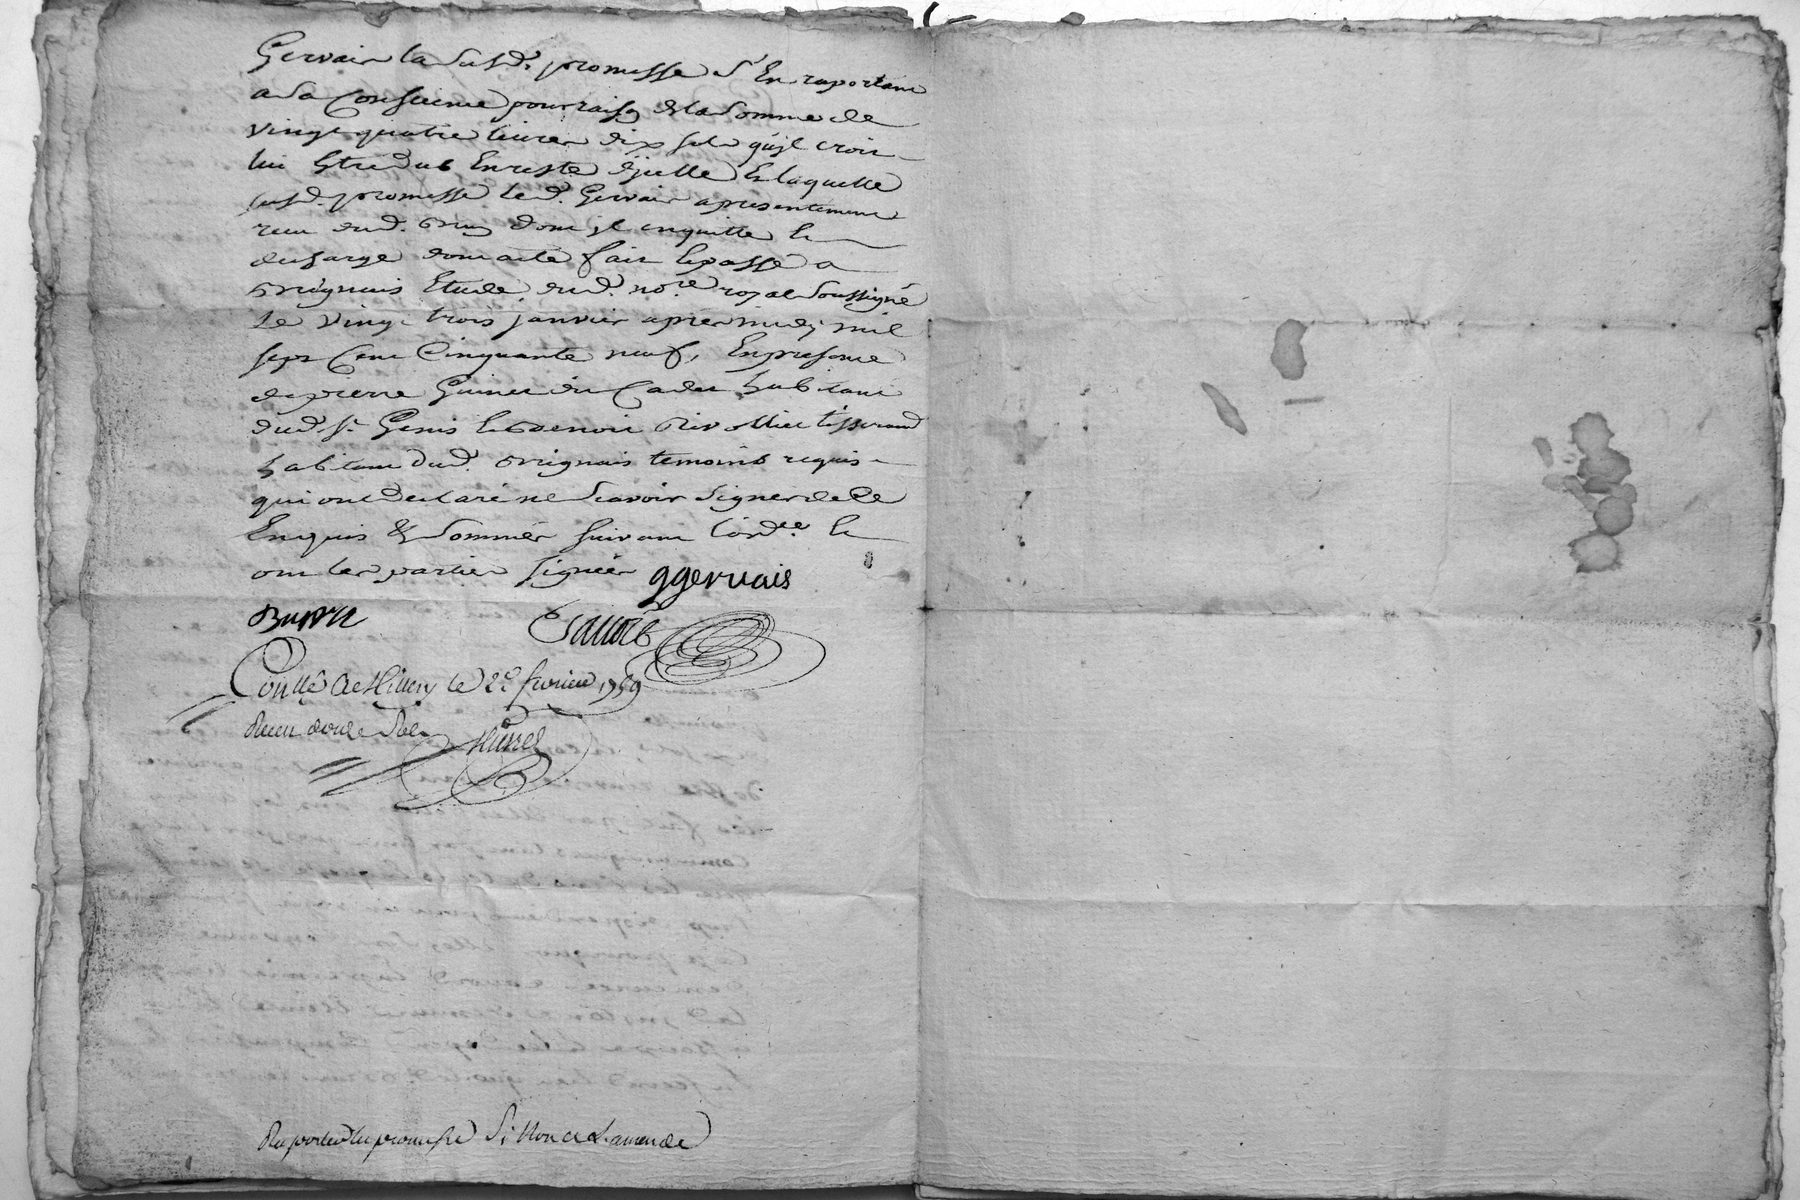 Gervais la susd. promesse s'En raportant
a sa Conscience pour raison de la somme de
vingt quatre livres dix sols qu'jl croit
lui Etre dub En reste d'jcelle & laquelle
susd. promesse led. Gervais a presentement
receu dud. dont jl en quitte &
decharge dont acte fait & passé a
Brignais Etude dud. no.re royal soussigné
Le vingt trois janvier apres midy mil
sept Cent Cinquante neuf, En presence
de pierre Guinet dit Cadet habitant
dud. St Genis & Benoit Rivollier tisserand
habitant dud. Brignais temoins requis
qui ont declaré ne scavoir signer de Ce
Enquis & sommés suivant l'ord.ce &
ont les parties signées ggervais

Con.llé a le 2e fevrier 1759
Receu douze sols
Raportés la promesse si non a L'amende